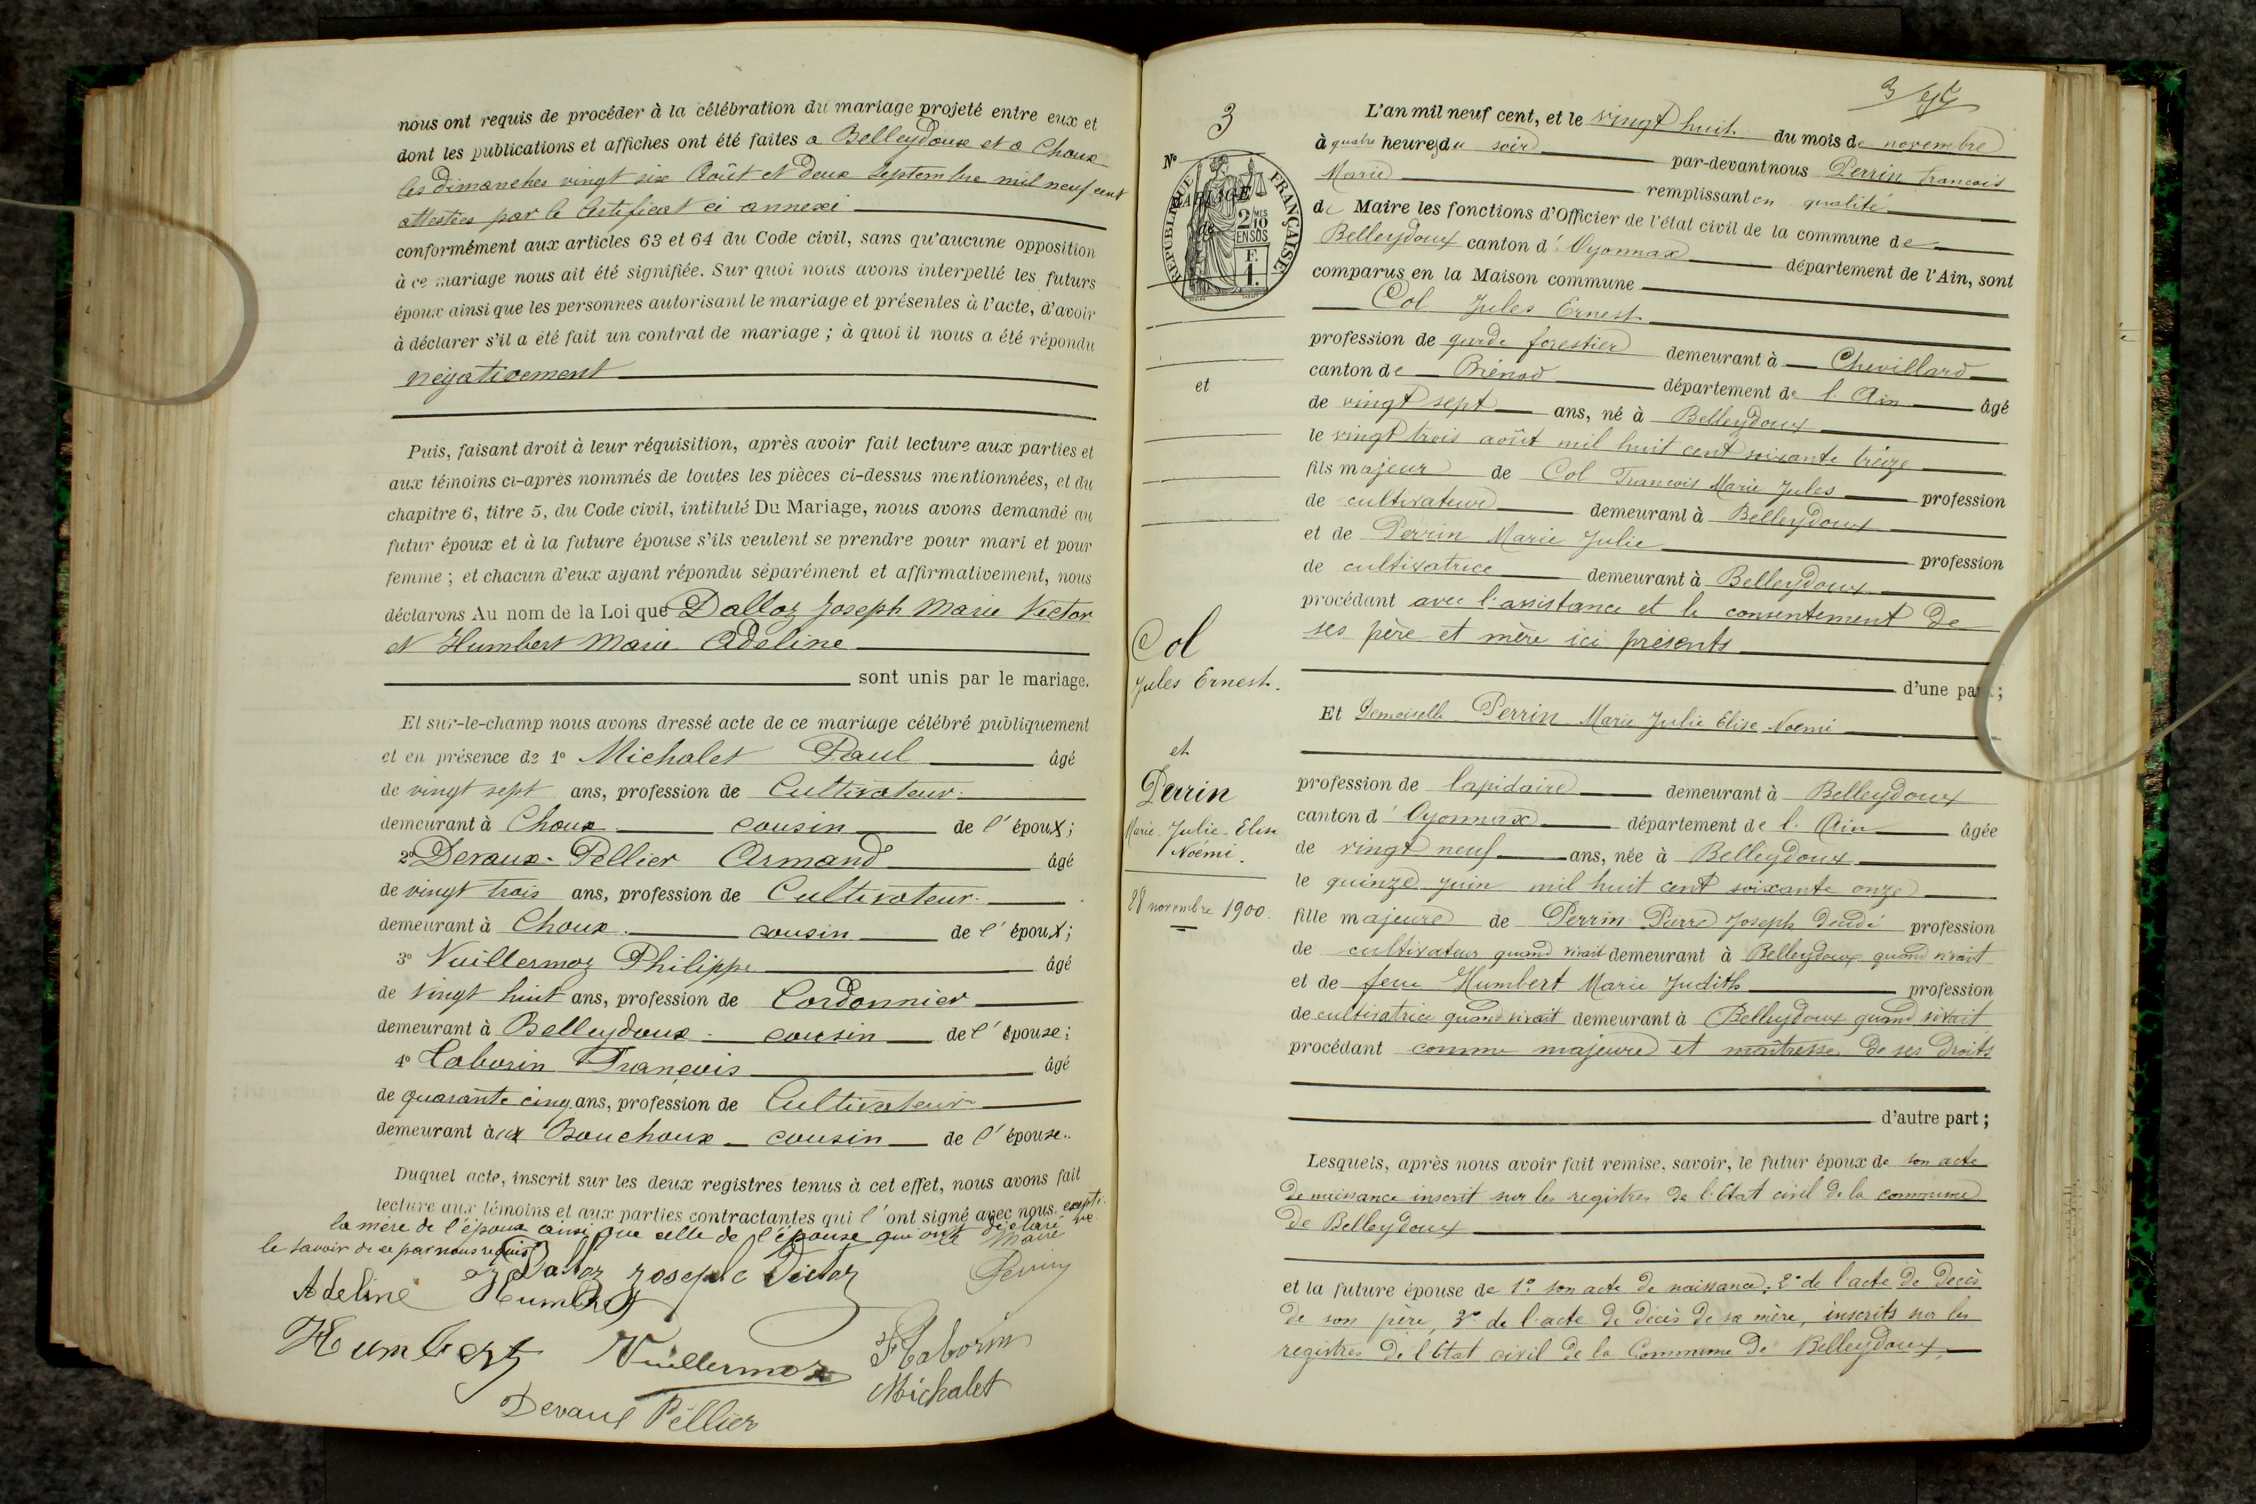 nous ont requis de procéder à la célébration du mariage projeté entre eux et
dont les publications et affiches ont été faites a Belleydoux et a Choux
les dimanches vingt six Août et deux Septembre mil neuf cent
attestées par le Certificat ci annexé
conformément aux articles 63 et 64 du Code civil, sans qu'aucune opposition
à ce mariage nous ait été signifiée. Sur quoi nous avons interpellé les futurs
époux ainsi que les personnes autorisant le mariage et présentes à l'acte, d'avoir
à déclarer s'il a été fait un contrat de mariage ; à quoi il nous a été répondu
négativement
Puis, faisant droit à leur réquisition, après avoir fait lecture aux parties et
aux témoins ci-après nommés de toutes les pièces ci-dessus mentionnées, et du
chapitre 6, titre 5, du Code civil, intitulé Du Mariage, nous avons demandé au
futur époux et à la future épouse s'ils veulent se prendre pour mari et pour
femme ; et chacun d'eux ayant répondu séparément et affirmativement, nous
déclarons Au nom de la Loi que Dalloz Joseph Marie Victor
et Humbert Marie Adeline
sont unis par le mariage.
Et sur-le-champ nous avons dressé acte de ce mariage célébré publiquement
et en présence de 1° Michalet Paul âgé
de vingt sept ans, profession de Cultivateur
demeurant à Choux cousin de l'époux ;
2° Devaux-Pellier Armand âgé
de vingt trois ans, profession de Cultivateur
demeurant à Choux cousin de l'époux ;
3° Vuillermoz Philippe âgé
de vingt huit ans, profession de Cordonnier
demeurant à Belleydoux cousin de l'épouse ;
4° Laborin François âgé
de quarante cinq ans, profession de Cultivateur
demeurant aux Bouchoux cousin de l'épouse.
Duquel acte, inscrit sur les deux registres tenus à cet effet, nous avons fait
lecture aux témoins et aux parties contractantes qui l'ont signé avec nous excepté
la mère de l'époux ainsi que celle de l'épouse qui ont déclaré ne
le savoir de ce par nous requis Le Maire
Dalloz Joseph Victor Perrin
Adeline Humbert
Humbert Vuillermoz F Laborin
Michalet
Devaux Pellier
3
N°
MARIAGE
de
RÉPUBLIQUE FRANÇAISE
2/10 MES
EN SUS
F.
1.
et
Col
Jules Ernest.
et
Perrin
Marie-Julie-Elise
Noémi.
28 novembre 1900.
3
L'an mil neuf cent, et le vingt huit du mois de novembre
à quatre heures du soir par-devant nous Perrin François
Marie remplissant en qualité
de Maire les fonctions d'Officier de l'état civil de la commune de
Belleydoux canton d'Oyonnax département de l'Ain, sont
comparus en la Maison commune
Col Jules Ernest
profession de garde forestier demeurant à Chevillard
canton de Brénod département de l'Ain âgé
de vingt sept ans, né à Belleydoux
le vingt trois août mil huit cent soixante treize
fils majeur de Col François Marie Jules profession
de cultivateur demeurant à Belleydoux
et de Perrin Marie Julie profession
de cultivatrice demeurant à Belleydoux
procédant avec l'assistance et le consentement de
ses père et mère ici présents
d'une part ;
Et Demoiselle Perrin Marie Julie Elise Noémi
profession de lapidaire demeurant à Belleydoux
canton d'Oyonnax département de l'Ain âgée
de vingt neuf ans, née à Belleydoux
le quinze juin mil huit cent soixante onze
fille majeure de Perrin Pierre Joseph décédé profession
de cultivateur quand vivait demeurant à Belleydoux quand vivait
et de feue Humbert Marie Judith profession
de cultivatrice quand vivait demeurant à Belleydoux quand vivait
procédant comme majeure et maîtresse de ses droits
d'autre part ;
Lesquels, après nous avoir fait remise, savoir, le futur époux de son acte
de naissance inscrit sur les registres de l'Etat civil de la commune
de Belleydoux
et la future épouse de 1° son acte de naissance ; 2° de l'acte de décès
de son père, 3° de l'acte de décès de sa mère, inscrits sur les
registres de l'Etat civil de la Commune de Belleydoux,